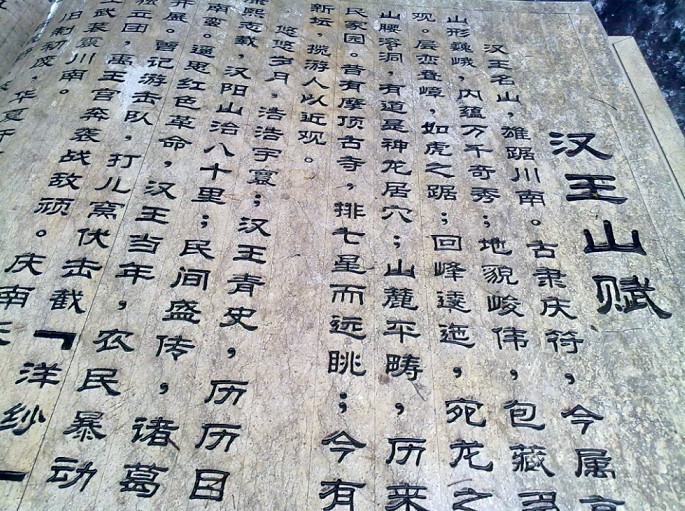 汉王山赋
汉王名山，雄踞川南。古隶庆符，今属高
山形巍峨，内蕴万千奇秀；地貌峻伟，包藏
观。层峦叠嶂，如虎之踞；回峰逶迤，宛龙之
山腰溶洞，有道是神龙居穴；山麓平畴，历来
民家园。昔有摩顶古寺，排七星而远眺；今有
新坛，揽游人以近观。
悠悠岁月，浩浩宇寰；汉王青史，历历目
康熙志载，汉阳山治八十里；民间盛传，诸葛
南蛮。遥思红色革命，汉王当年，农民暴动
开展。曾记游击队，打儿窝伏击截「洋纱
立团，禹王宫奔袭战敌顽。庆南
武泰震川南。
旧制初废，华夏